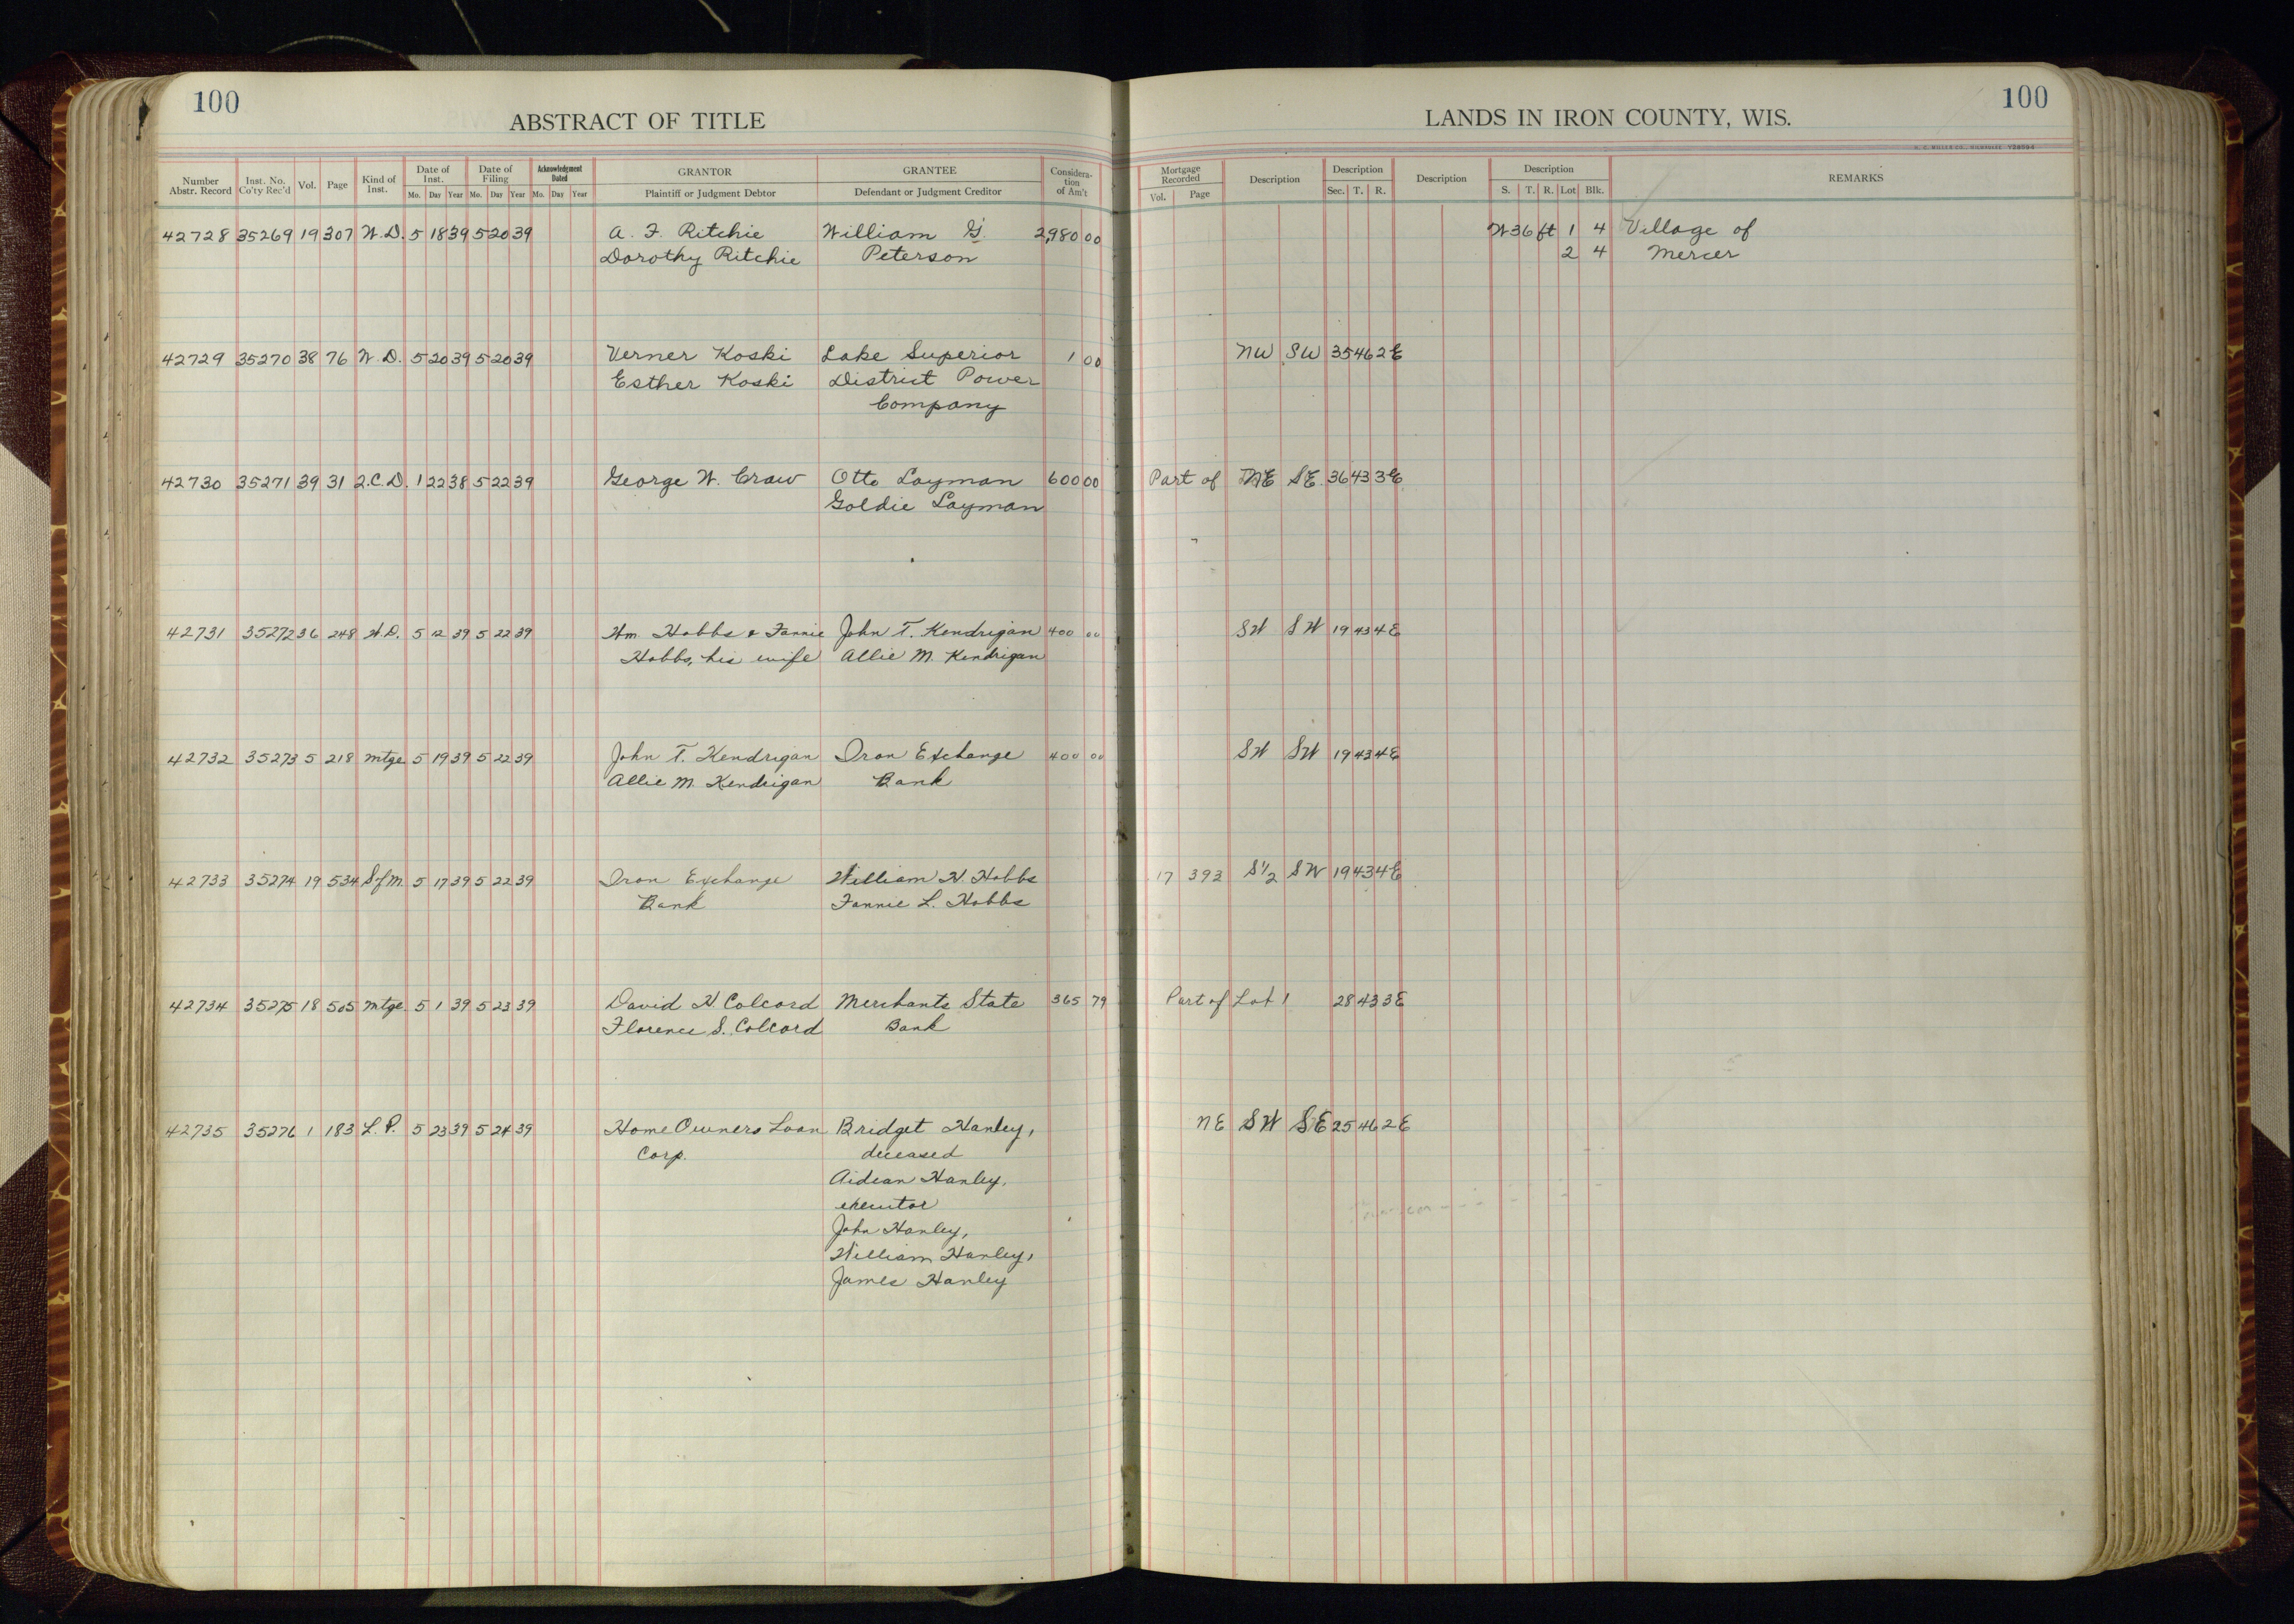 100
ABSTRACT OF TITLE
LANDS IN IRON COUNTY, WIS.
100
H. C. MILLER CO., MILWAUKEE V28594
Number Abstr. Record | Inst. No. Co'ty Rec'd | Vol. | Page | Kind of Inst. | Date of Inst. | Date of Filing | Acknowledgment Dated | GRANTOR | GRANTEE | Considera-tion of Am't | Mortgage Recorded | Description | Description | Description | Description | REMARKS
Mo. Day Year Mo. Day Year Mo. Day Year Plaintiff or Judgment Debtor Defendant or Judgment Creditor Vol. Page Sec. T. R. S. T. R. Lot Blk.
42728 35269 19 307 W.D. 5 18 39 5 20 39 A. F. Ritchie William G. 2,980 00 W 36 ft 1 4 Village of
Dorothy Ritchie Peterson 2 4 Mercer
42729 35270 38 76 W.D. 5 20 39 5 20 39 Verner Koski Lake Superior 1 00 NW SW 35 46 2E
Esther Koski District Power
Company
42730 35271 39 31 2.C.D. 1 22 38 5 22 39 George W. Craw Otto Layman 600 00 Part of NE SE 36 43 3E
Goldie Layman
42731 35272 36 248 W.D. 5 12 39 5 22 39 Wm. Hobbs & Fannie John T. Kendrigan 400 00 SW SW 19 43 4E
Hobbs, his wife Allie M. Kendrigan
42732 35273 5 218 mtge 5 19 39 5 22 39 John T. Kendrigan Iron Exchange 400 00 SW SW 19 43 4E
Allie M. Kendrigan Bank
42733 35274 19 534 S of M. 5 17 39 5 22 39 Iron Exchange William H. Hobbs 17 393 S½ SW 19 43 4E
Bank Fannie L. Hobbs
42734 35275 18 505 mtge. 5 1 39 5 23 39 David H. Colcord Merchants State 365 79 Part of Lot 1 28 43 3E
Florence S. Colcord Bank
42735 35276 1 183 L.P. 5 23 39 5 24 39 Home Owners Loan Bridget Hanley, NE SW SE 25 46 2E
Corp. deceased
Aidean Hanley,
executor
John Hanley,
William Hanley,
James Hanley